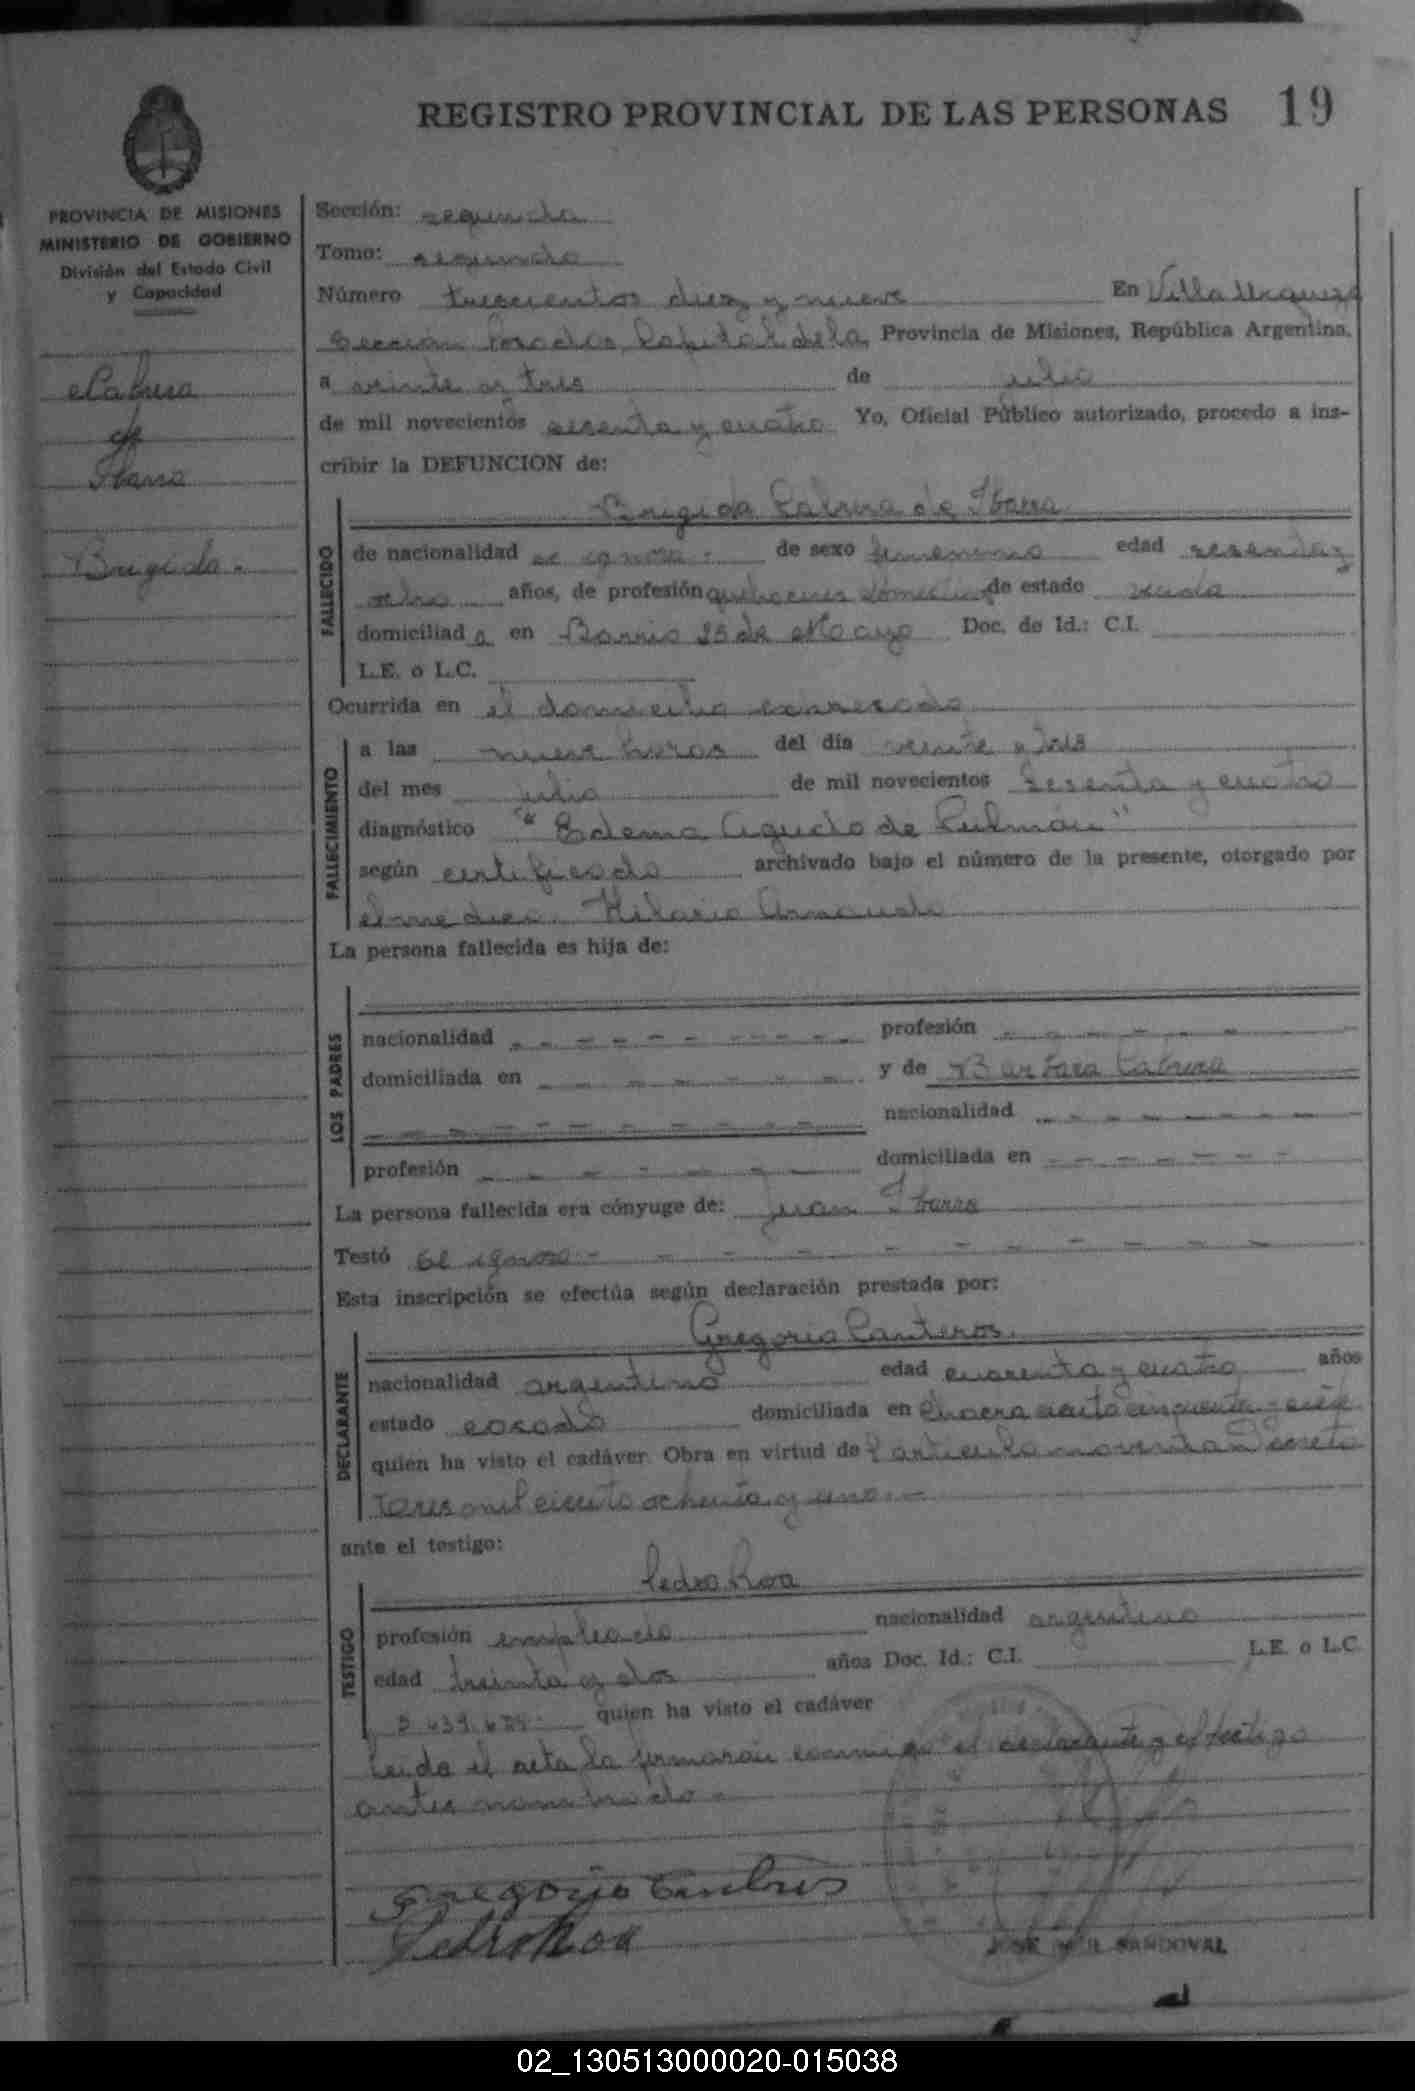 REGISTRO PROVINCIAL DE LAS PERSONAS 19
PROVINCIA DE MISIONES
MINISTERIO DE GOBIERNO
División del Estado Civil
y Capacidad
Cabrera
de
Ibarra
Brigida.-
Sección: segunda
Tomo: segundo
Número trescientos diez y nueve En Villa Urquiza
Sección Posadas Capital de la Provincia de Misiones, República Argentina,
a veinte y tres de julio
de mil novecientos sesenta y cuatro Yo, Oficial Público autorizado, procedo a ins-
cribir la DEFUNCION de:
Brigida Cabrera de Ibarra
FALLECIDO
de nacionalidad se ignora.- de sexo femenino edad sesenta y
ocho años, de profesión quehaceres domésticos de estado viuda
domiciliada en Barrio 25 de Mayo Doc. de Id.: C.I.
L.E. o L.C.
Ocurrida en el domicilio expresado
FALLECIMIENTO
a las nueve horas del día veinte y tres
del mes julio de mil novecientos sesenta y cuatro
diagnóstico "Edema Agudo de Pulmón"
según certificado archivado bajo el número de la presente, otorgado por
el medico Hilario
La persona fallecida es hija de:
LOS PADRES
nacionalidad - - - - profesión - - - -
domiciliada en - - - - y de Barbara Cabrera
- - - - nacionalidad - - - -
profesión - - - - domiciliada en - - - -
La persona fallecida era cónyuge de: Juan Ibarra
Testó Se ignora - - - -
Esta inscripción se efectúa según declaración prestada por:
Gregorio Canteros.
DECLARANTE
nacionalidad argentino edad cuarenta y cuatro años
estado casado domiciliada en Chacra ciento cincuenta y siete
quien ha visto el cadáver. Obra en virtud del articulo noventa Decreto
tres mil ciento ochenta y uno.-
ante el testigo:
Pedro Roa
TESTIGO
profesión empleado nacionalidad argentino
edad treinta y dos años Doc. Id.: C.I. L.E. o L.C.
quien ha visto el cadáver
Leida el acta la firmaron conmigo el declarante y el testigo
antes nombrado.-
Gregorio Canteros
Pedro Roa
JOSE SANDOVAL
02_130513000020-015038